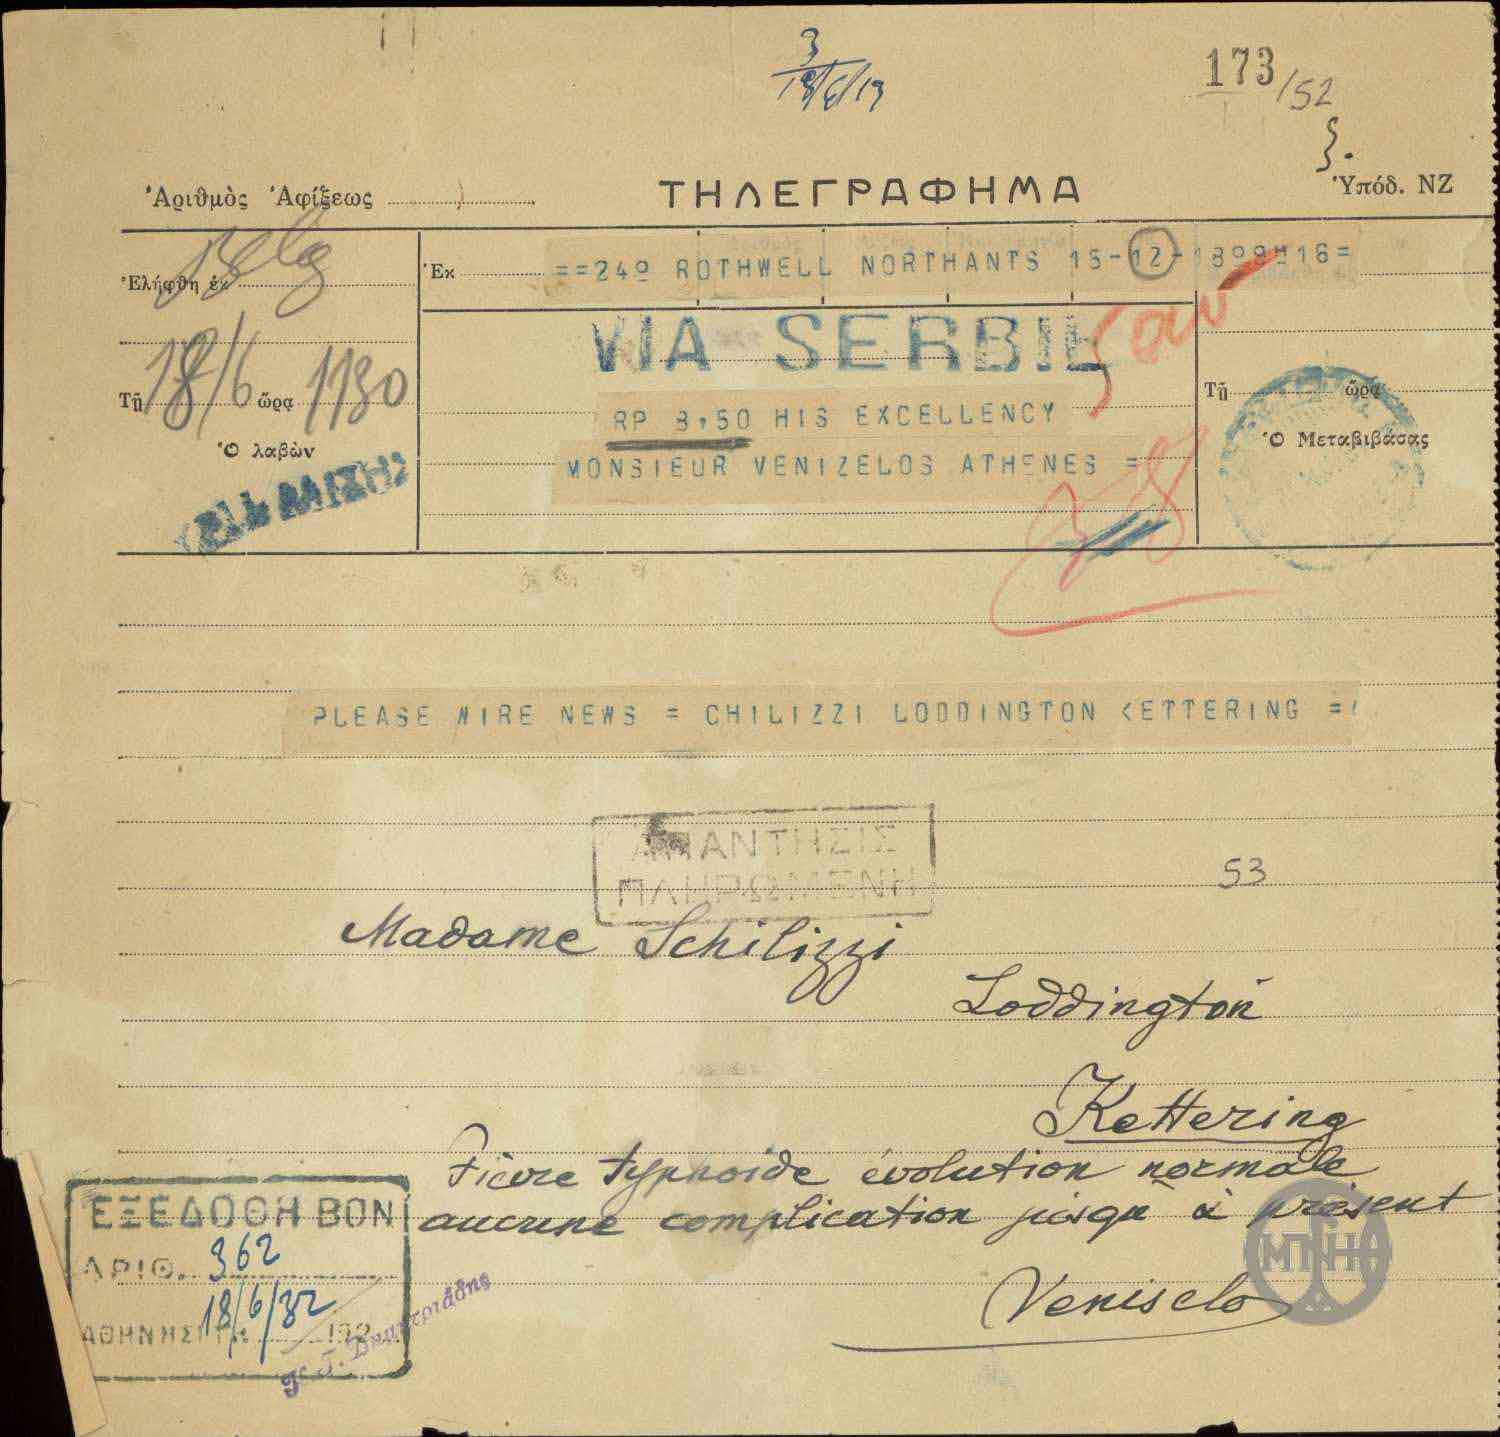 3
18/6/19
173/52
Ἀριθμὸς Ἀφίξεως
ΤΗΛΕΓΡΑΦΗΜΑ
Ὑπόδ. ΝΖ
Ἐλήφθη ἐκ
Ἐκ
==24º ROTHWELL NORTHANTS 15-12-18º9H16=
VIA SERBIE
Τῇ 18/6 ὥρᾳ 1130
RP 8,50 HIS EXCELLENCY
Τῇ ὥρᾳ
Ὁ λαβὼν
MONSIEUR VENIZELOS ATHENES =
Ὁ Μεταβιβάσας
PLEASE WIRE NEWS = CHILIZZI LODDINGTON KETTERING =
ΑΠΑΝΤΗΣΙΣ
ΠΛΗΡΩΜΕΝΗ
53
Madame Schilizzi
Loddington
Kettering
Fièvre typhoide évolution normale
aucune complication jusqu'à présent
Veniselos
ΕΞΕΔΟΘΗ ΒΟΝ
ΑΡΙΘ. 362
ΑΘΗΝΗΣΙ ΤΗ 18/6/32 192
ΜΠΝΗ